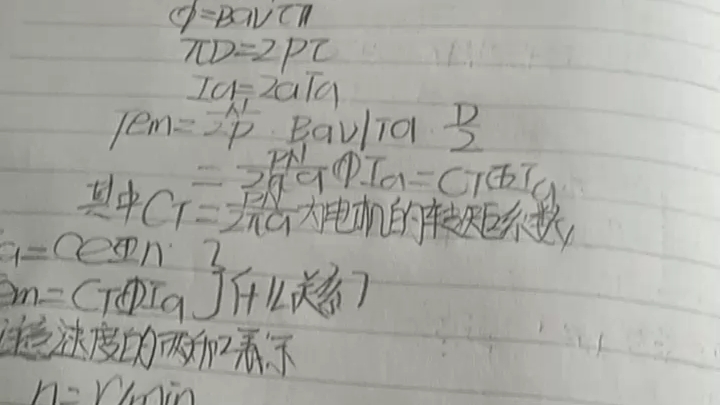 Φ=Bavτl
πD=2pτ
Ia=2aia
Tem= · Bav l ia D/2
= pN/2πa ΦIa=CTΦIa
其中CT=pN/2πa为电机的转矩系数,
a=CeΦn
em=CTΦIa }什么关系?
速度的两种表示
n=r/min